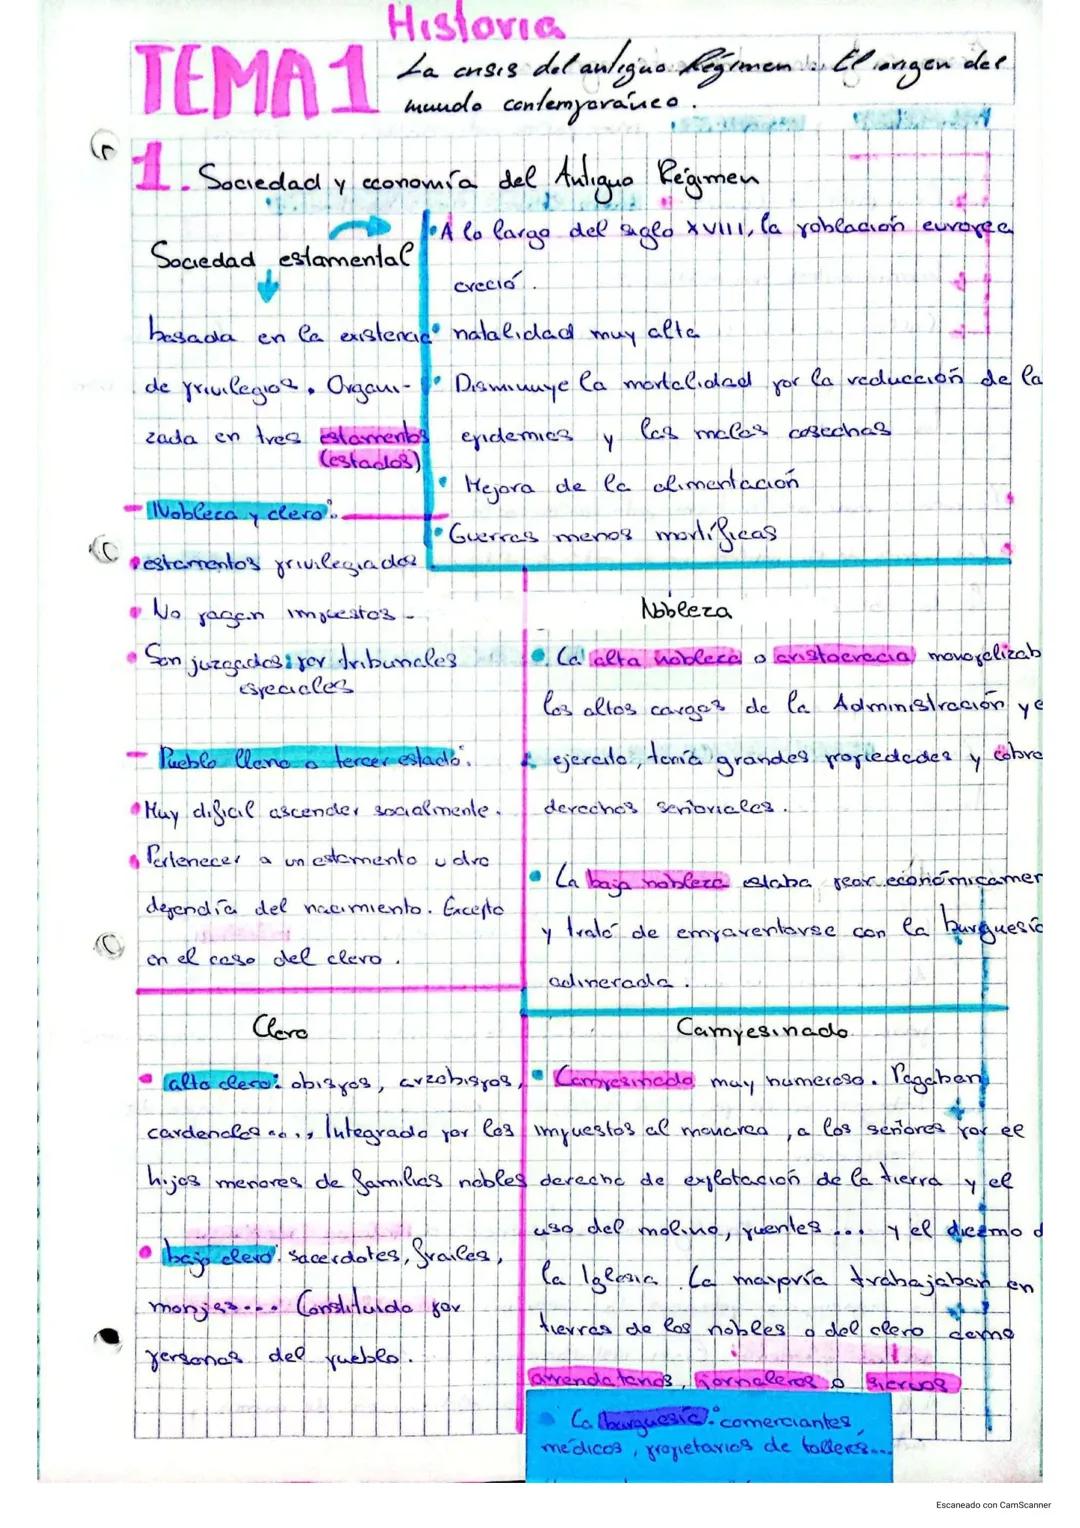 Historia
TEMA 1
La crisis del antiguo Régimen. El origen del
mundo contemporáneo.
1. Sociedad y economía del Antiguo Régimen
Sociedad estamental
basada en la existencia
de privilegios. Organi-
zada en tres estamentos
(estados)
- Nobleza y clero:
• estamentos privilegiados
• No pagan impuestos.
• Son juzgados por tribunales
especiales
- Pueblo llano o tercer estado:
• Muy dificil ascender socialmente.
• Pertenecer a un estamento u otro
dependía del nacimiento. Excepto
en el caso del clero.
• A lo largo del siglo XVIII, la población europea
creció.
• natalidad muy alta
• Disminuye la mortalidad por la reducción de la
epidemias y las malas cosechas
• Mejora de la alimentación
• Guerras menos mortíficas
Nobleza
• La alta nobleza o aristocracia monopolizab
los altos cargos de la Administración y e
ejercito, tenía grandes propiedades y cobra
derechos señoriales.
• La baja nobleza estaba peor económicamen
y trató de emparentarse con la burguesía
adinerada.
Clero
• alto clero: obispos, arzobispos,
cardenales..., Integrado por los
hijos menores de familias nobles
• bajo clero: sacerdotes, frailes,
monjas... Constituido por
personas del pueblo.
Campesinado
• Campesinado muy numeroso. Pagaban
impuestos al monarca, a los señores por el
derecho de explotación de la tierra y el
uso del molino, puentes ... y el diezmo d
la Iglesia. La mayoría trabajaban en
tierras de los nobles o del clero como
arrendatarios, jornaleros o siervos
• La burguesía: comerciantes,
médicos, propietarios de talleres...
Escaneado con CamScanner